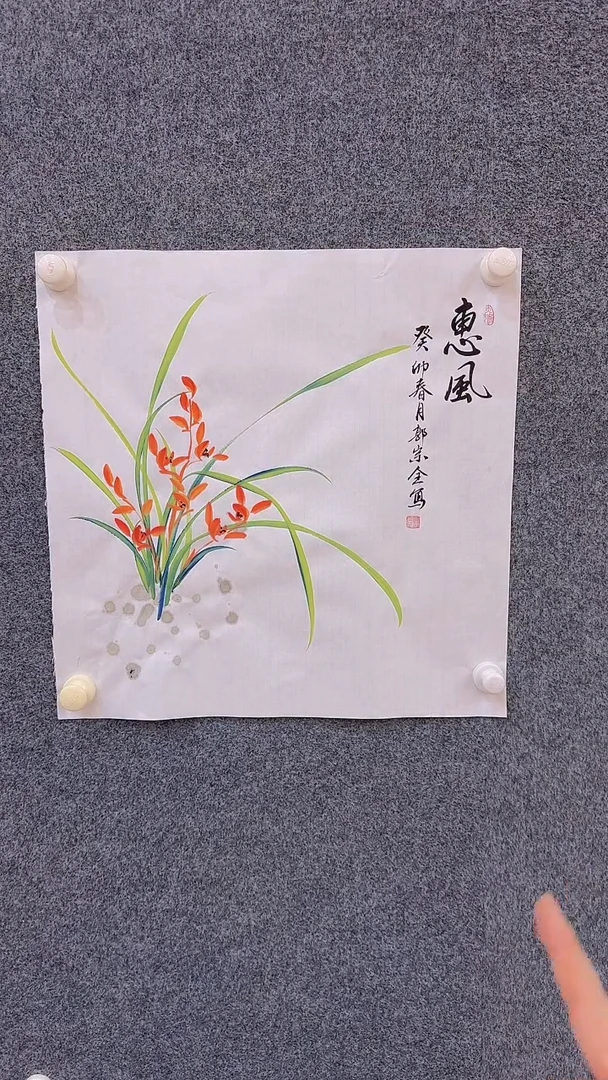 惠風
癸卯春月郭宗全寫